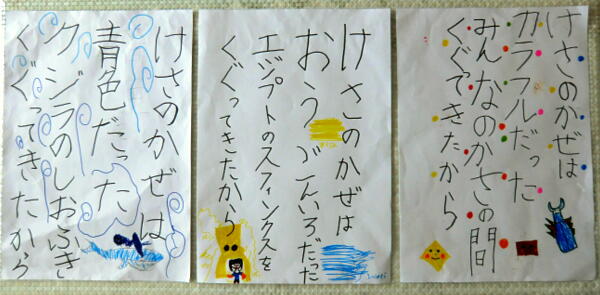 けさのかぜは
カラフルだった
みんなのかさの間
くぐってきたから
けさのかぜは
おうごんいろだった
エジプトのスフィンクスを
くぐってきたから
けさのかぜは
青色だった
クジラのしおふき
くぐってきたから